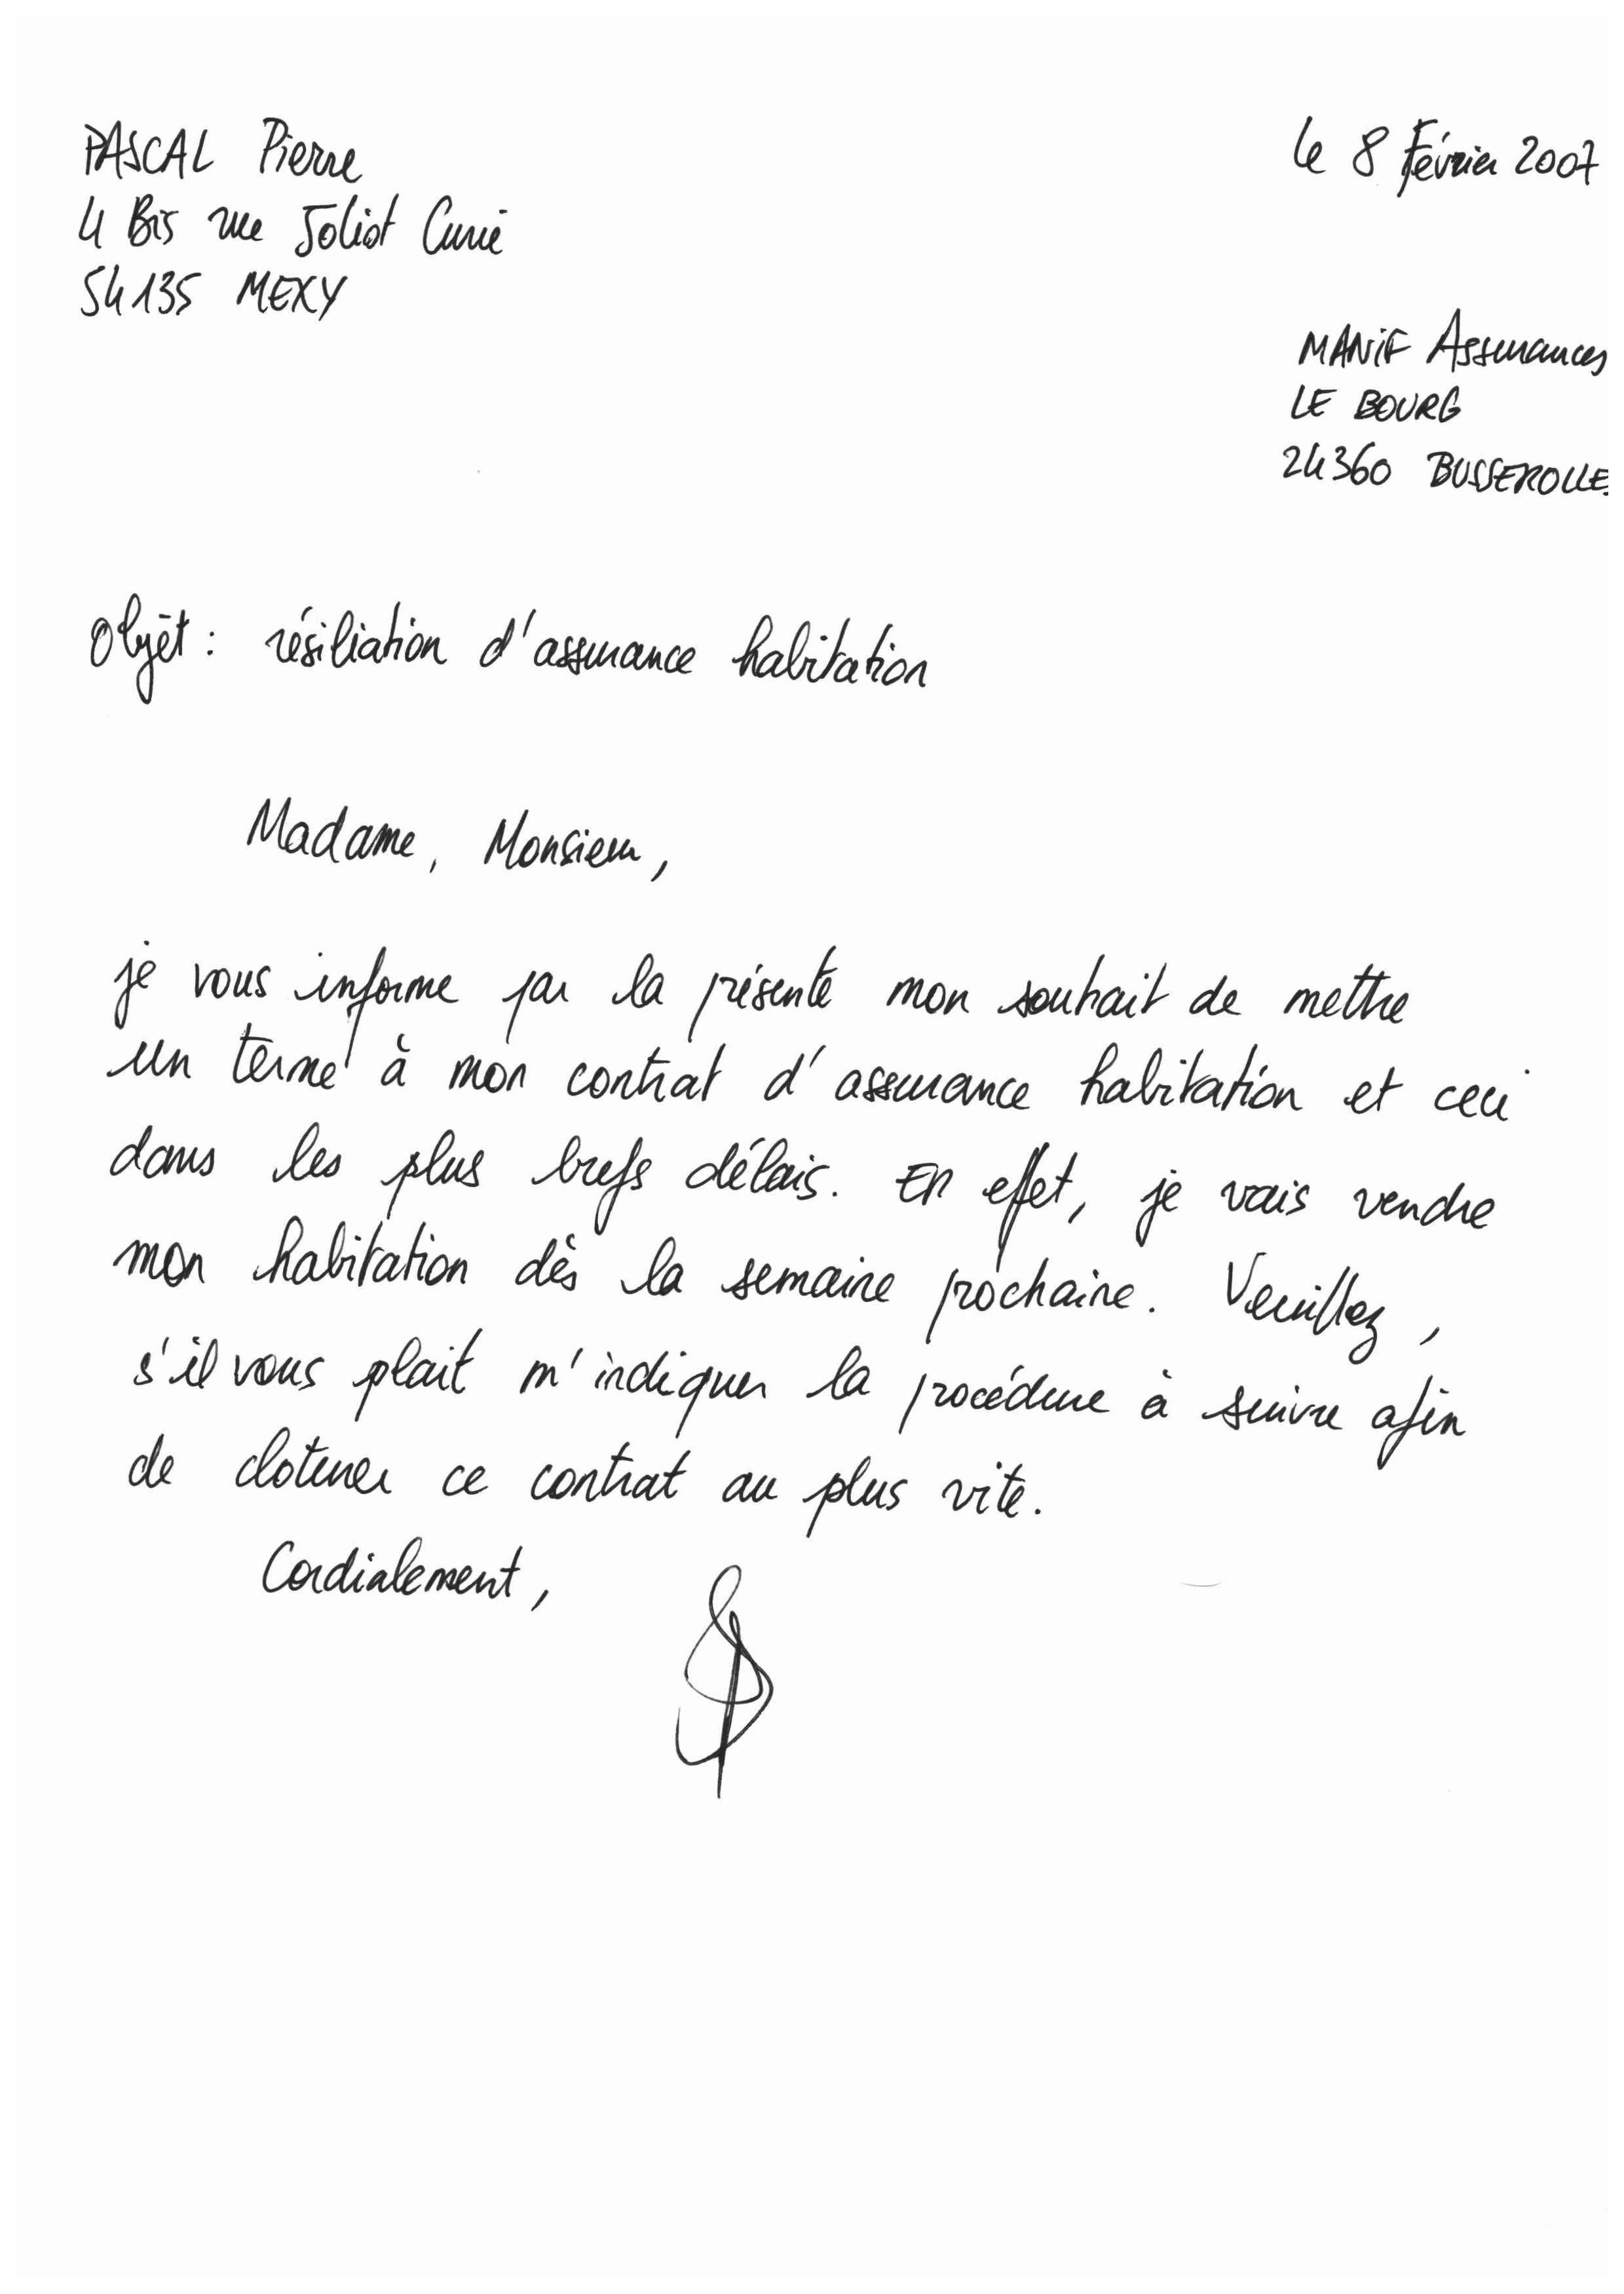 PASCAL Pierre
4 Bis rue Joliot Curie
54135 MEXY
le 8 Février 2007
MANiF Assurances
LE BOURG
24360 BUSSEROLLES
Objet : résiliation d'assurance habitation
Madame, Monsieur,
je vous informe par la présente mon souhait de mettre
un terme à mon contrat d'assurance habitation et ceci
dans les plus brefs délais. En effet, je vais vendre
mon habitation dès la semaine prochaine. Veuillez,
s'il vous plait m'indiquer la procédure à suivre afin
de cloturer ce contrat au plus vite.
Cordialement,